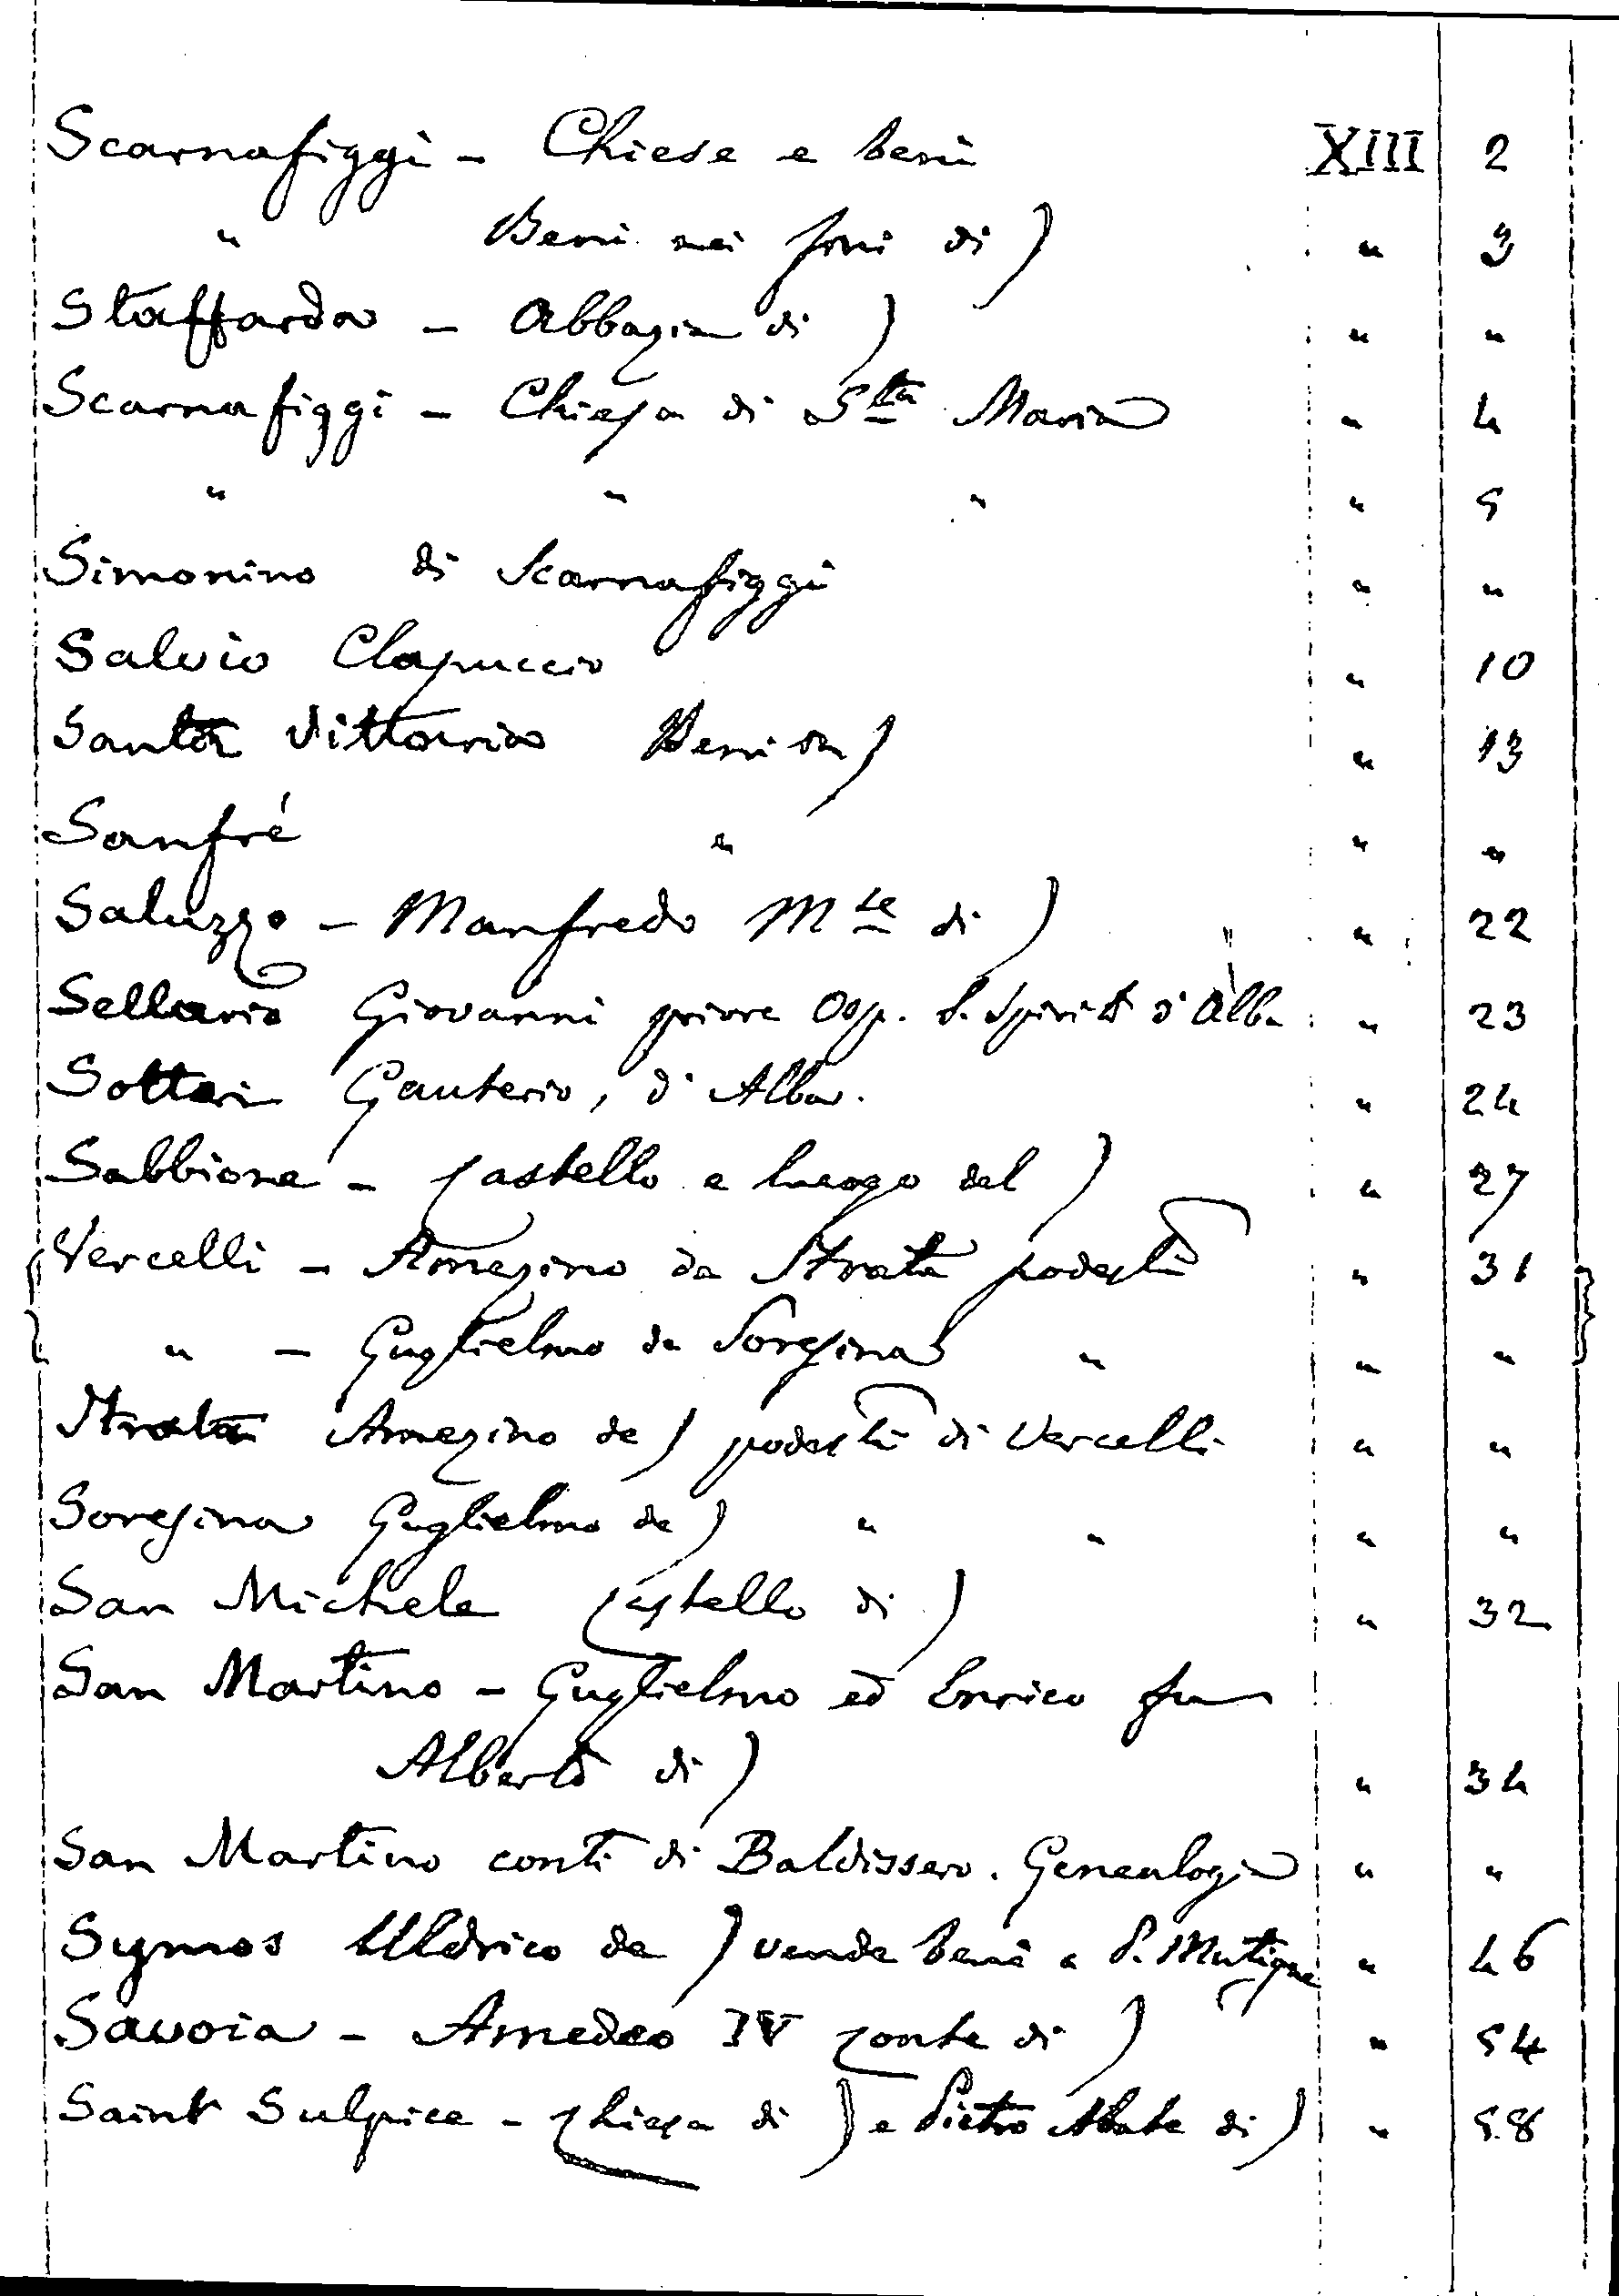 Scarnafiggi - Chiese e beni XIII 2
" Beni nei fini di) " 3
Staffarda - Abbazia di) " "
Scarnafiggi - Chiesa di Sta Maria " 4
" " " " 5
Simonino di Scarnafiggi " "
Salvio Clapuccio " 10
Santa Vittoria Beni in) " 13
Sanfré " " "
Saluzzo - Manfredo Mse di) " 22
Sellario Giovanni priore Osp. S. Spirito d'Alba " 23
Sottari Gauterio, d'Alba. " 24
Sabbione - Castello e luogo del) " 27
Vercelli - Amezino da Strata podestà " 31
" - Guglielmo da Soresina " " "
Strata Amezino de) podestà di Vercelli " "
Soresina Guglielmo de) " " " "
San Michele Castello di) " 32
San Martino - Guglielmo ed Enrico fu
Alberto di) " 34
San Martino conti di Baldissero. Genealogia " "
Symos Uldrico de) vende beni a S. " 46
Savoia - Amedeo IV conte di) " 54
Saint Sulpice - Chiesa di) e Pietro Abate di) " 58